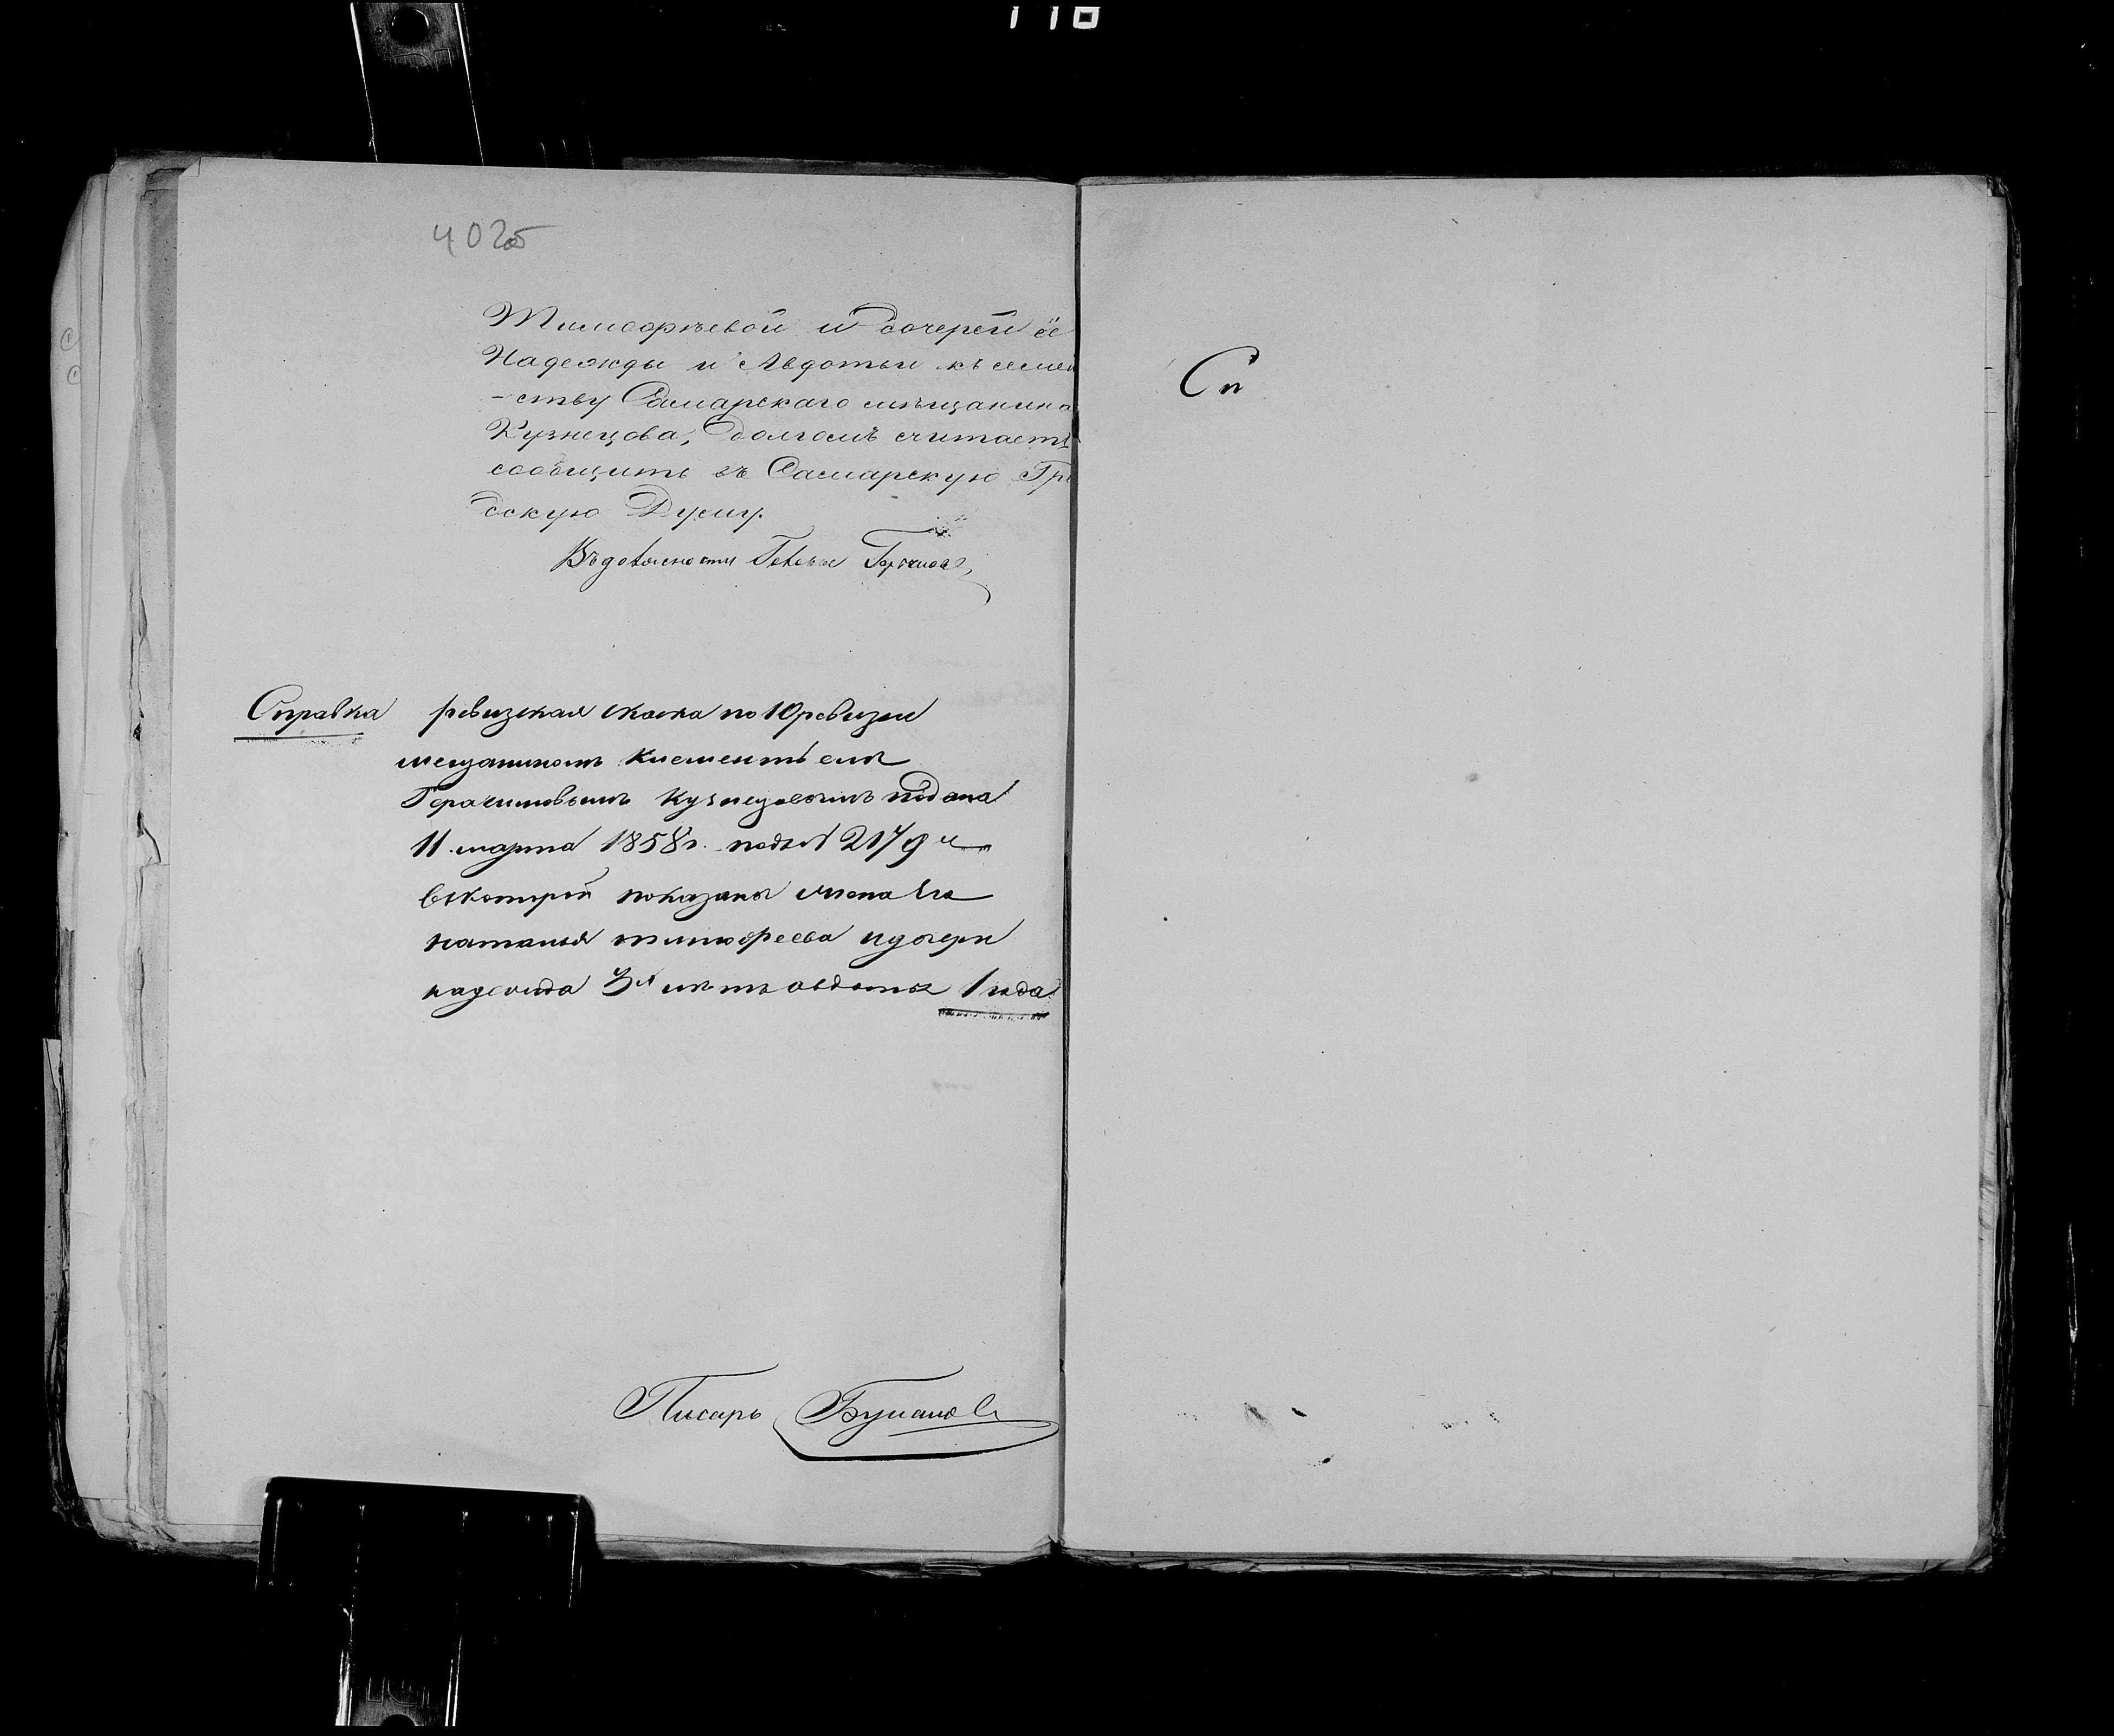 402об
Тимофѣевой и дочерей её
Надежды и Авдотьи къ семей
-ству Самарскаго мѣщанина
Кузнецова, долгомъ считаетъ
сообщить въ Самарскую Гра
дскую Думу.
Въ должности
Справка ревизская скаска по 10 ревизіи
мещаниномъ Клементьемъ
Герасимовымъ Кузнецовымъ подана
11 марта 1858 г. подъ № 2179 м
вкоторой показаны жена Его
наталья тимофеева идочери
надежда 3х лѣтъ авдотья 1 года
Писарь
Сп